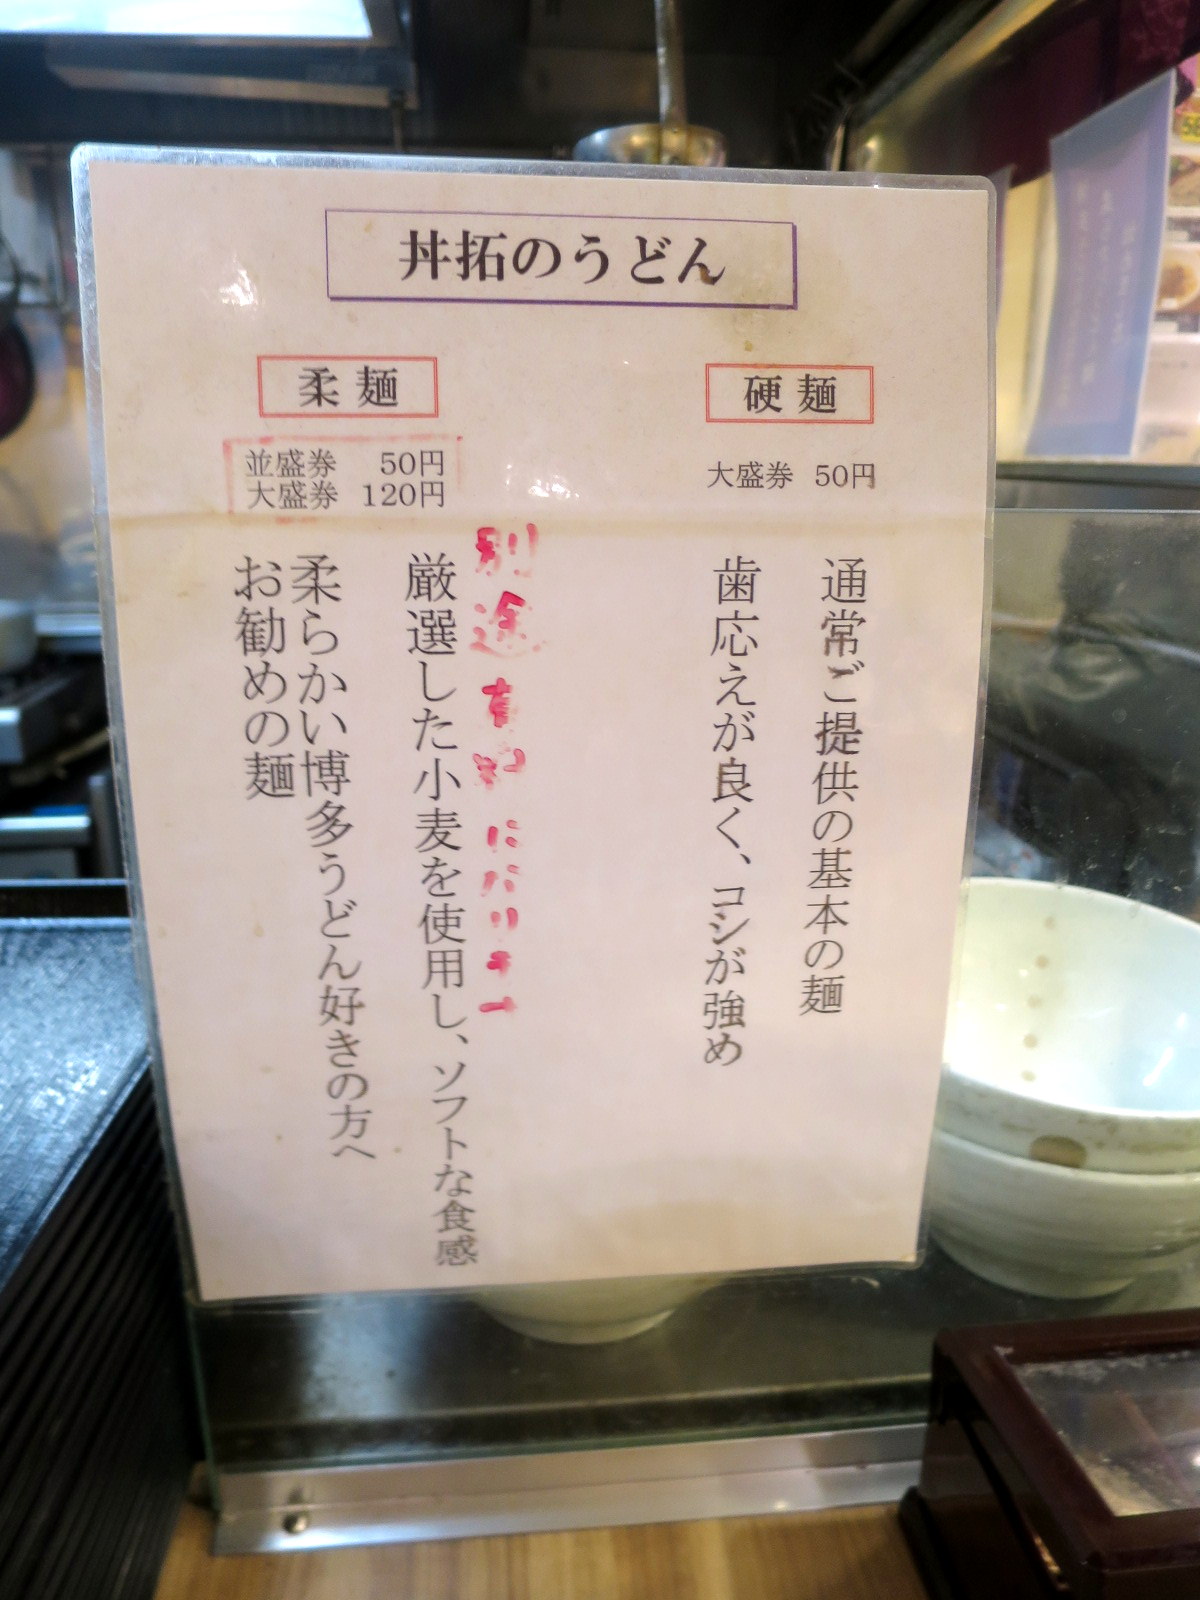 丼拓のうどん
硬麺
大盛券 50円
通常ご提供の基本の麺
歯応えが良く、コシが強め
柔麺
並盛券 50円
大盛券 120円
別途有料になります
厳選した小麦を使用し、ソフトな食感
柔らかい博多うどん好きの方へ
お勧めの麺